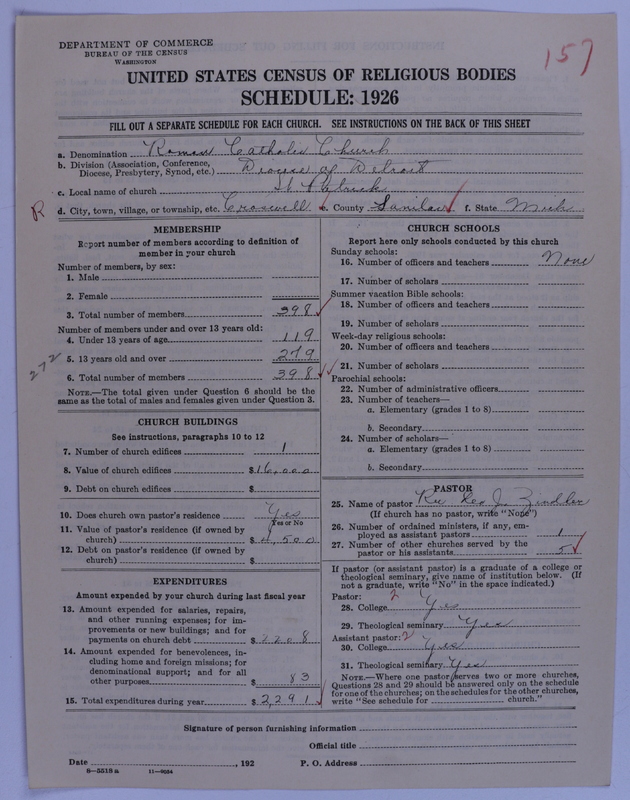 157
DEPARTMENT OF COMMERCE
BUREAU OF THE CENSUS
WASHINGTON
UNITED STATES CENSUS OF RELIGIOUS BODIES
SCHEDULE: 1926
FILL OUT A SEPARATE SCHEDULE FOR EACH CHURCH. SEE INSTRUCTIONS ON THE BACK OF THIS SHEET
a. Denomination Roman Catholic Church
b. Division (Association, Conference, Diocese, Presbytery, Synod, etc.) Diocese of Detroit
c. Local name of church St Patrick
R d. City, town, village, or township, etc. Croswell e. County Sanilac f. State Mich
MEMBERSHIP
Report number of members according to definition of
member in your church
Number of members, by sex:
1. Male
2. Female
3. Total number of members 398
Number of members under and over 13 years old:
4. Under 13 years of age 119
5. 13 years old and over 279
272
6. Total number of members 398
NOTE.—The total given under Question 6 should be the
same as the total of males and females given under Question 3.
CHURCH BUILDINGS
See instructions, paragraphs 10 to 12
7. Number of church edifices 1
8. Value of church edifices $16,000
9. Debt on church edifices $
10. Does church own pastor's residence? Yes
Yes or No
11. Value of pastor's residence (if owned by
church) $4,500
12. Debt on pastor's residence (if owned by
church) $
EXPENDITURES
Amount expended by your church during last fiscal year
13. Amount expended for salaries, repairs,
and other running expenses; for im-
provements or new buildings; and for
payments on church debt $2208
14. Amount expended for benevolences, in-
cluding home and foreign missions; for
denominational support; and for all
other purposes $83
15. Total expenditures during year $2,291
CHURCH SCHOOLS
Report here only schools conducted by this church
Sunday schools:
16. Number of officers and teachers None
17. Number of scholars
Summer vacation Bible schools:
18. Number of officers and teachers
19. Number of scholars
Week-day religious schools:
20. Number of officers and teachers
21. Number of scholars
Parochial schools:
22. Number of administrative officers
23. Number of teachers—
a. Elementary (grades 1 to 8)
b. Secondary
24. Number of scholars—
a. Elementary (grades 1 to 8)
b. Secondary
PASTOR
25. Name of pastor Rev Leo J. Zindler
(If church has no pastor, write "None")
26. Number of ordained ministers, if any, em-
ployed as assistant pastors 1
27. Number of other churches served by the
pastor or his assistants 5
If pastor (or assistant pastor) is a graduate of a college or
theological seminary, give name of institution below. (If
not a graduate, write "No" in the space indicated.)
Pastor: 2
28. College Yes
29. Theological seminary Yes
Assistant pastor: 2
30. College Yes
31. Theological seminary Yes
NOTE.—Where one pastor serves two or more churches,
Questions 28 and 29 should be answered only on the schedule
for one of the churches; on the schedules for the other churches,
write "See schedule for church."
Signature of person furnishing information
Official title
Date , 192 P. O. Address
8—5518 a 11—9034